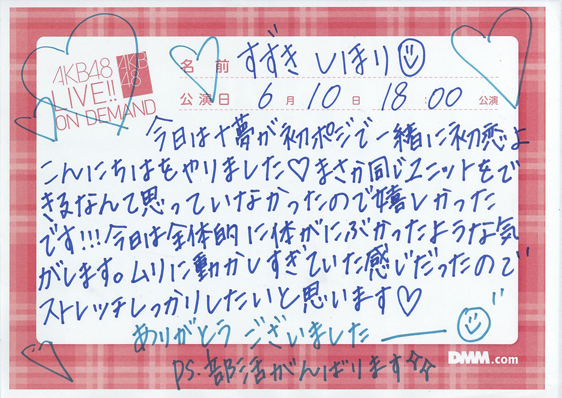 AKB48
LIVE!!
ON DEMAND
AKB
48
名前 すずき しほり
公演日 6月10日 18:00 公演
今日は十夢が初ポジで一緒に初恋よ
こんにちはをやりました♡まさか同じユニットをで
きるなんて思っていなかったので嬉しかった
です!!!今日は全体的に体がにぶかったような気
がします。ムリに動かしすぎていた感じだったので
ストレッチしっかりしたいと思います♡
ありがとうございました——
PS.部活がんばります☆☆
DMM.com